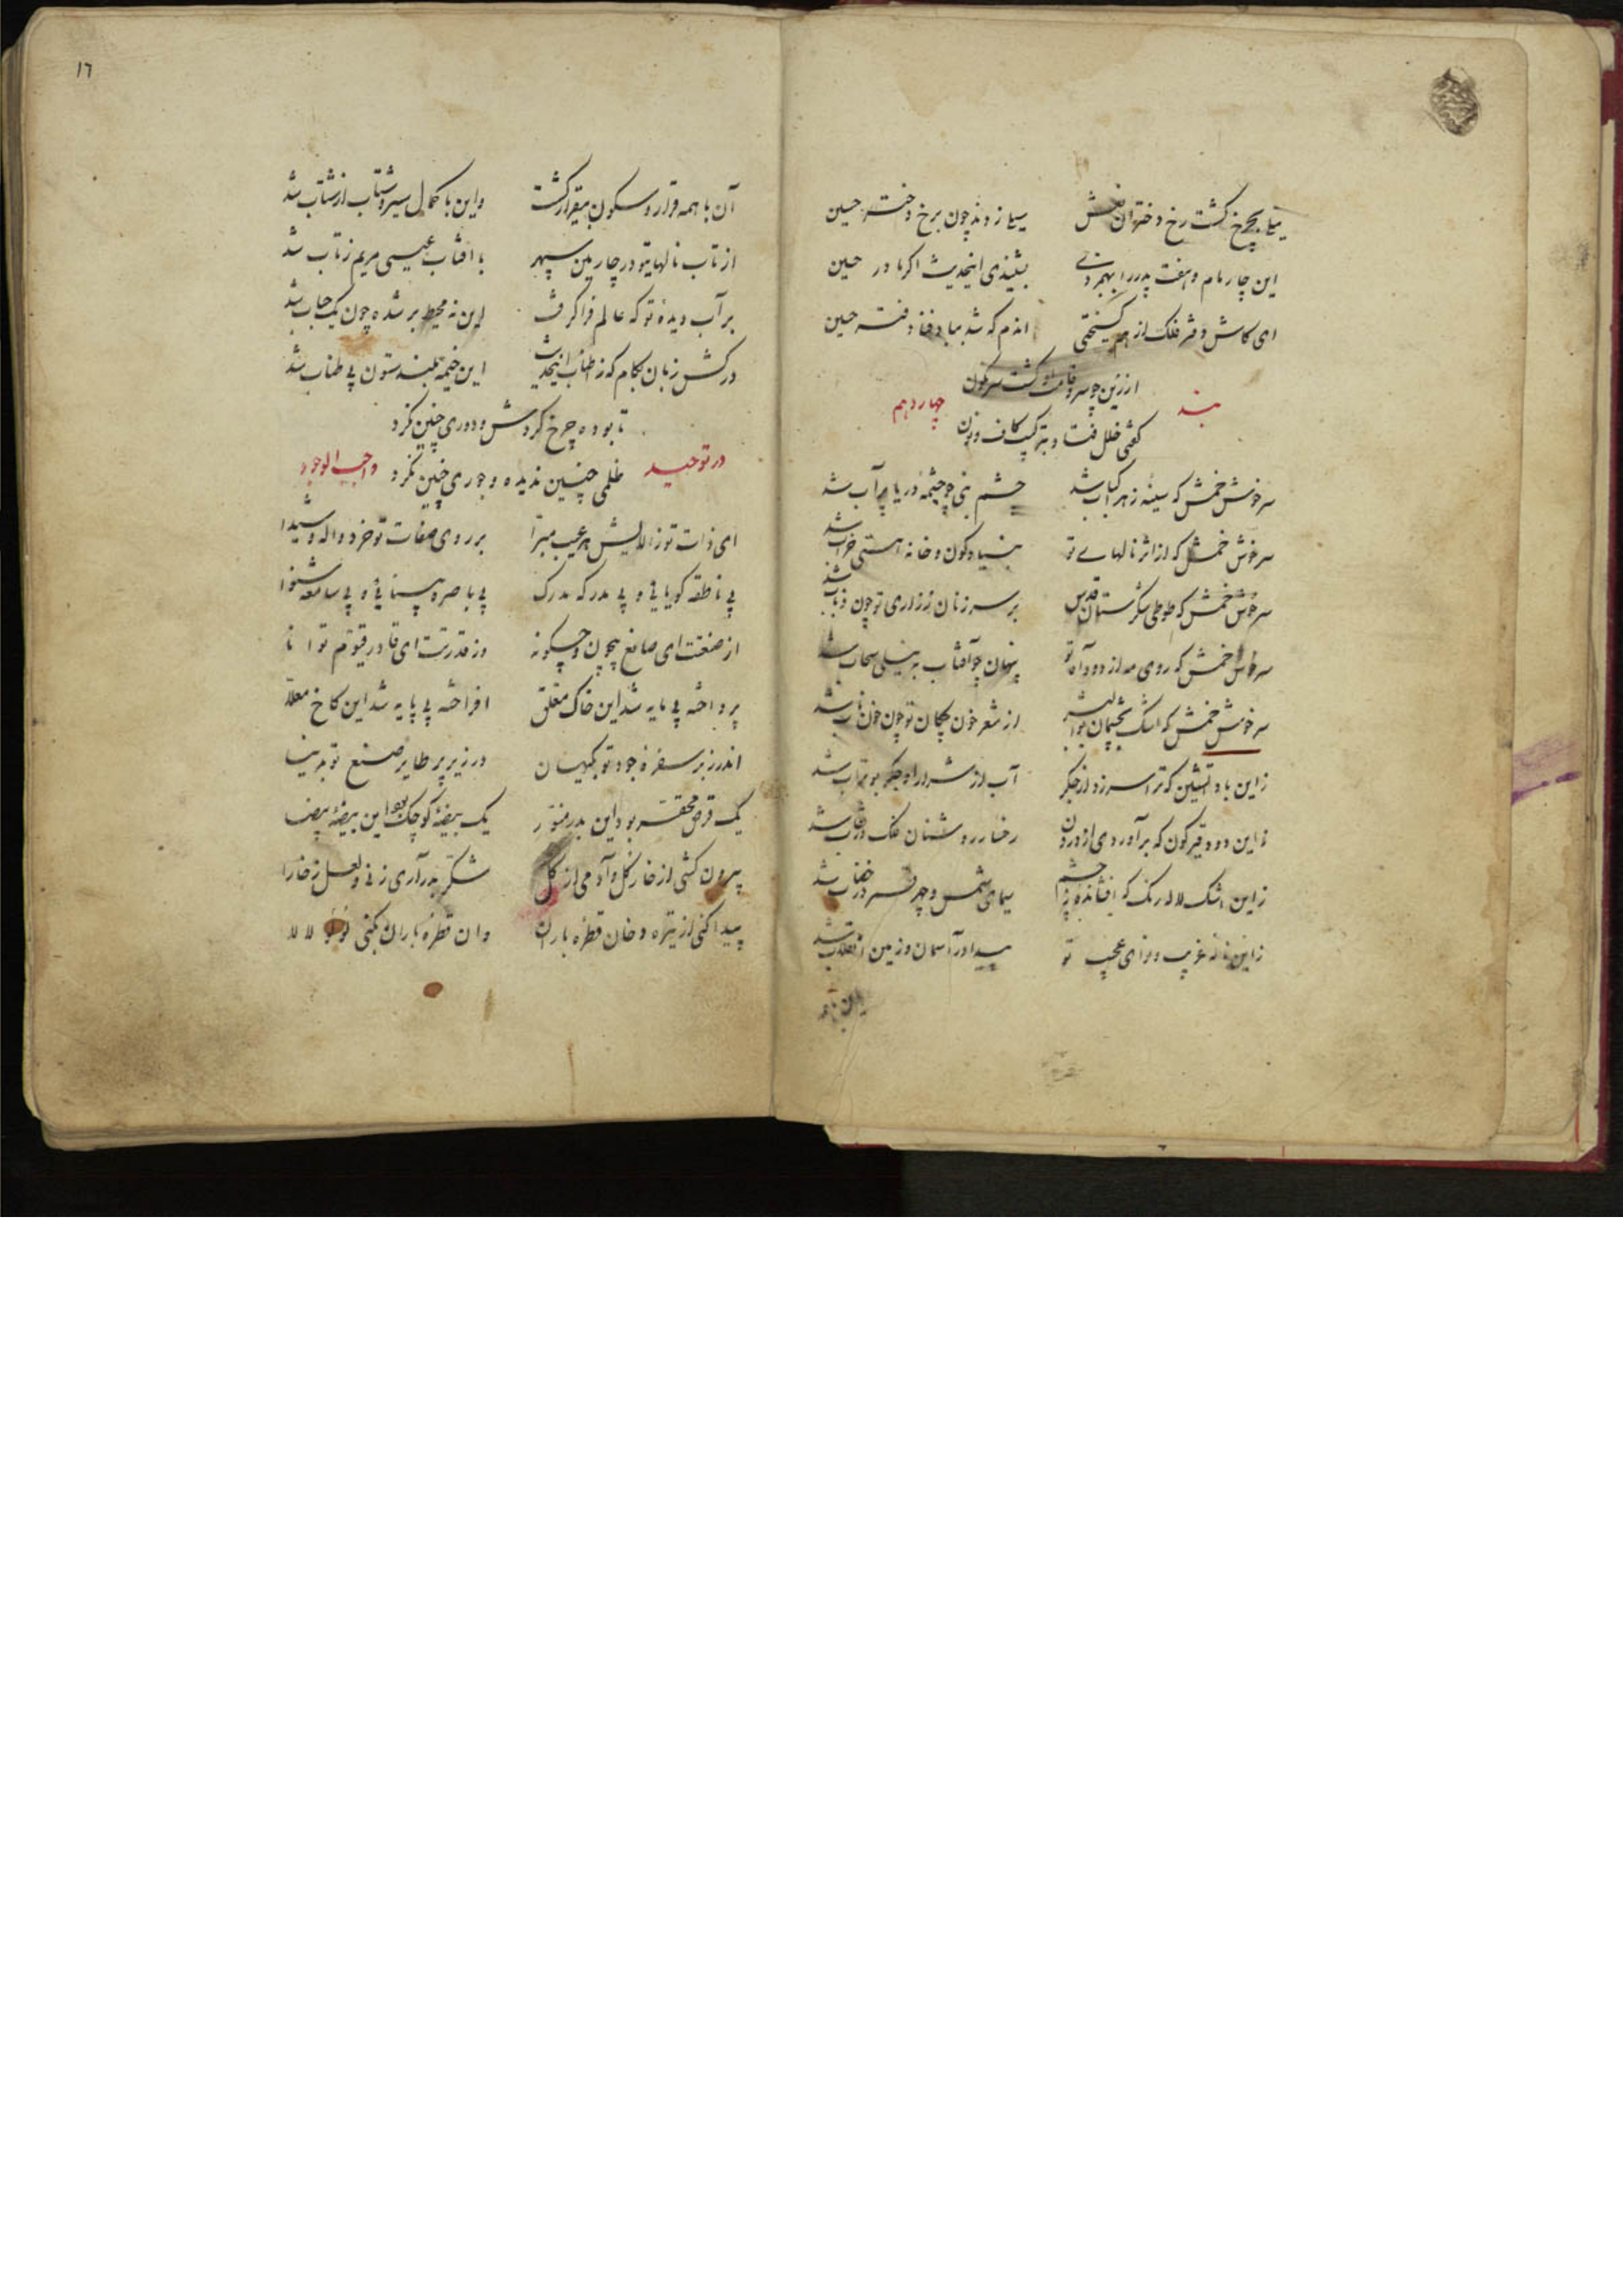 نیلی چرخ گشت رخ دختران نعش سیلی زدند چون برخ دختر حسین
این چار مام و هفت پدر را بهم زدی بشنیدی اینحدیث اگر مادر حسین
ای کاش دفتر فلک از هم گسیختی اندم که شد بباد فنا دفتر حسین
از زین چو سرو قامت او گشت سرنگون
بند چهاردهم
گفتی خلل فتاد بترکیب کاف و نون
سرخوش خمش که سینهٔ زهرا کباب شد چشم نبی چو چشمهٔ دریا پر آب شد
سرخوش خمش که از اثر نالهای تو بنیاد کون و خانه هستی خراب شد
سرخوش خمش که طوطی شکرستان قدس بر سر زنان ز زاری تو چون ذباب شد
سرخوش خمش که روی مه از دود آه تو پنهان چو آفتاب به نیلی سحاب شد
سرخوش خمش که اشک بچشمان از شعر خون چکان تو چون خون ناب شد
زاین باد آتشین که ترا سر زد از جگر آب از شرار او جگر بوتراب شد
زاین دود قیرگون که برآوردی از درون رخسار روشنان فلک در نقاب شد
زاین اشک لاله رنگ که افشانده ز چشم سیمای شمس و چهر قمر در خضاب شد
زاین نالهٔ غریب و نوای عجیب تو پیدا در آسمان و زمین انقلاب شد
آن با همه
١٦
آن با همه قرار و سکون بیقرار گشت واین با کمال سیر و شتاب از شتاب شد
از تاب نالهای تو در چارمین سپهر با آفتاب عیسی مریم ز تاب شد
بر آب دیدهٔ تو که عالم فرا گرفت این نه محیط بر شده چون یک حباب شد
درکش زبان بکام که ز اطناب اینحدیث این خیمهٔ بلند ستون بی طناب شد
تا بوده چرخ گردش و دوری چنین نکرد
در توحید واجب الوجود
ظلمی چنین ندیده و جوری چنین نکرد
ای ذات تو ز آلایش هر عیب مبرّا بر روی صفات تو خرد واله و شیدا
بی ناطقه گویایی و بی مدرکه مدرک بی باصره بینایی و بی سامعه شنوا
از صنعت ای صانع بیچون و چگونه وز قدرتت ای قادر قیّوم توانا
پرداخته بی مایه شد این خاک معلق افراخته بی پایه شد این کاخ معلّا
اندر زبر سفرهٔ جود تو بکیهان در زیر پر طایر صنع تو بدنیا
یک قرص محقّر بود این بدر منوّر یک بیضهٔ کوچک بود این بیضهٔ بیضا
بیرون کشی از خار گل و آدمی از گل شکّر بدر آری ز نی و لعل ز خارا
پیدا کنی از تیره دخان قطره باران وان قطرهٔ باران بکنی لؤلؤ لالا